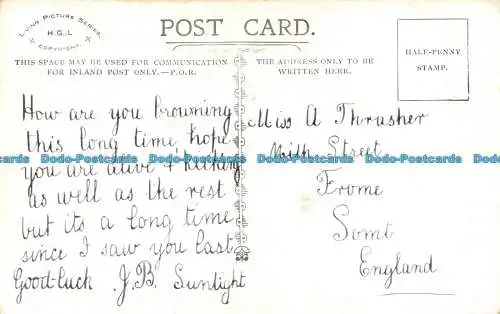 LIVING PICTURE SERIES
H.G.L
COPYRIGHT.
POST CARD.
THIS SPACE MAY BE USED FOR COMMUNICATION
FOR INLAND POST ONLY.—P.O.R.
THE ADDRESS ONLY TO BE
WRITTEN HERE.
HALF-PENNY
STAMP.
How are you browning
this long time, hope
you are alive + kicking
as well as the rest
but its a long time
since I saw you last
Good-luck J.B. Sunlight
Miss A Thrusher
Street
Frome
Somt
England
Dodo-Postcards Dodo-Postcards Dodo-Postcards Dodo-Postcards Dodo-Postcards
Dodo-Postcards Dodo-Postcards Dodo-Postcards Dodo-Postcards